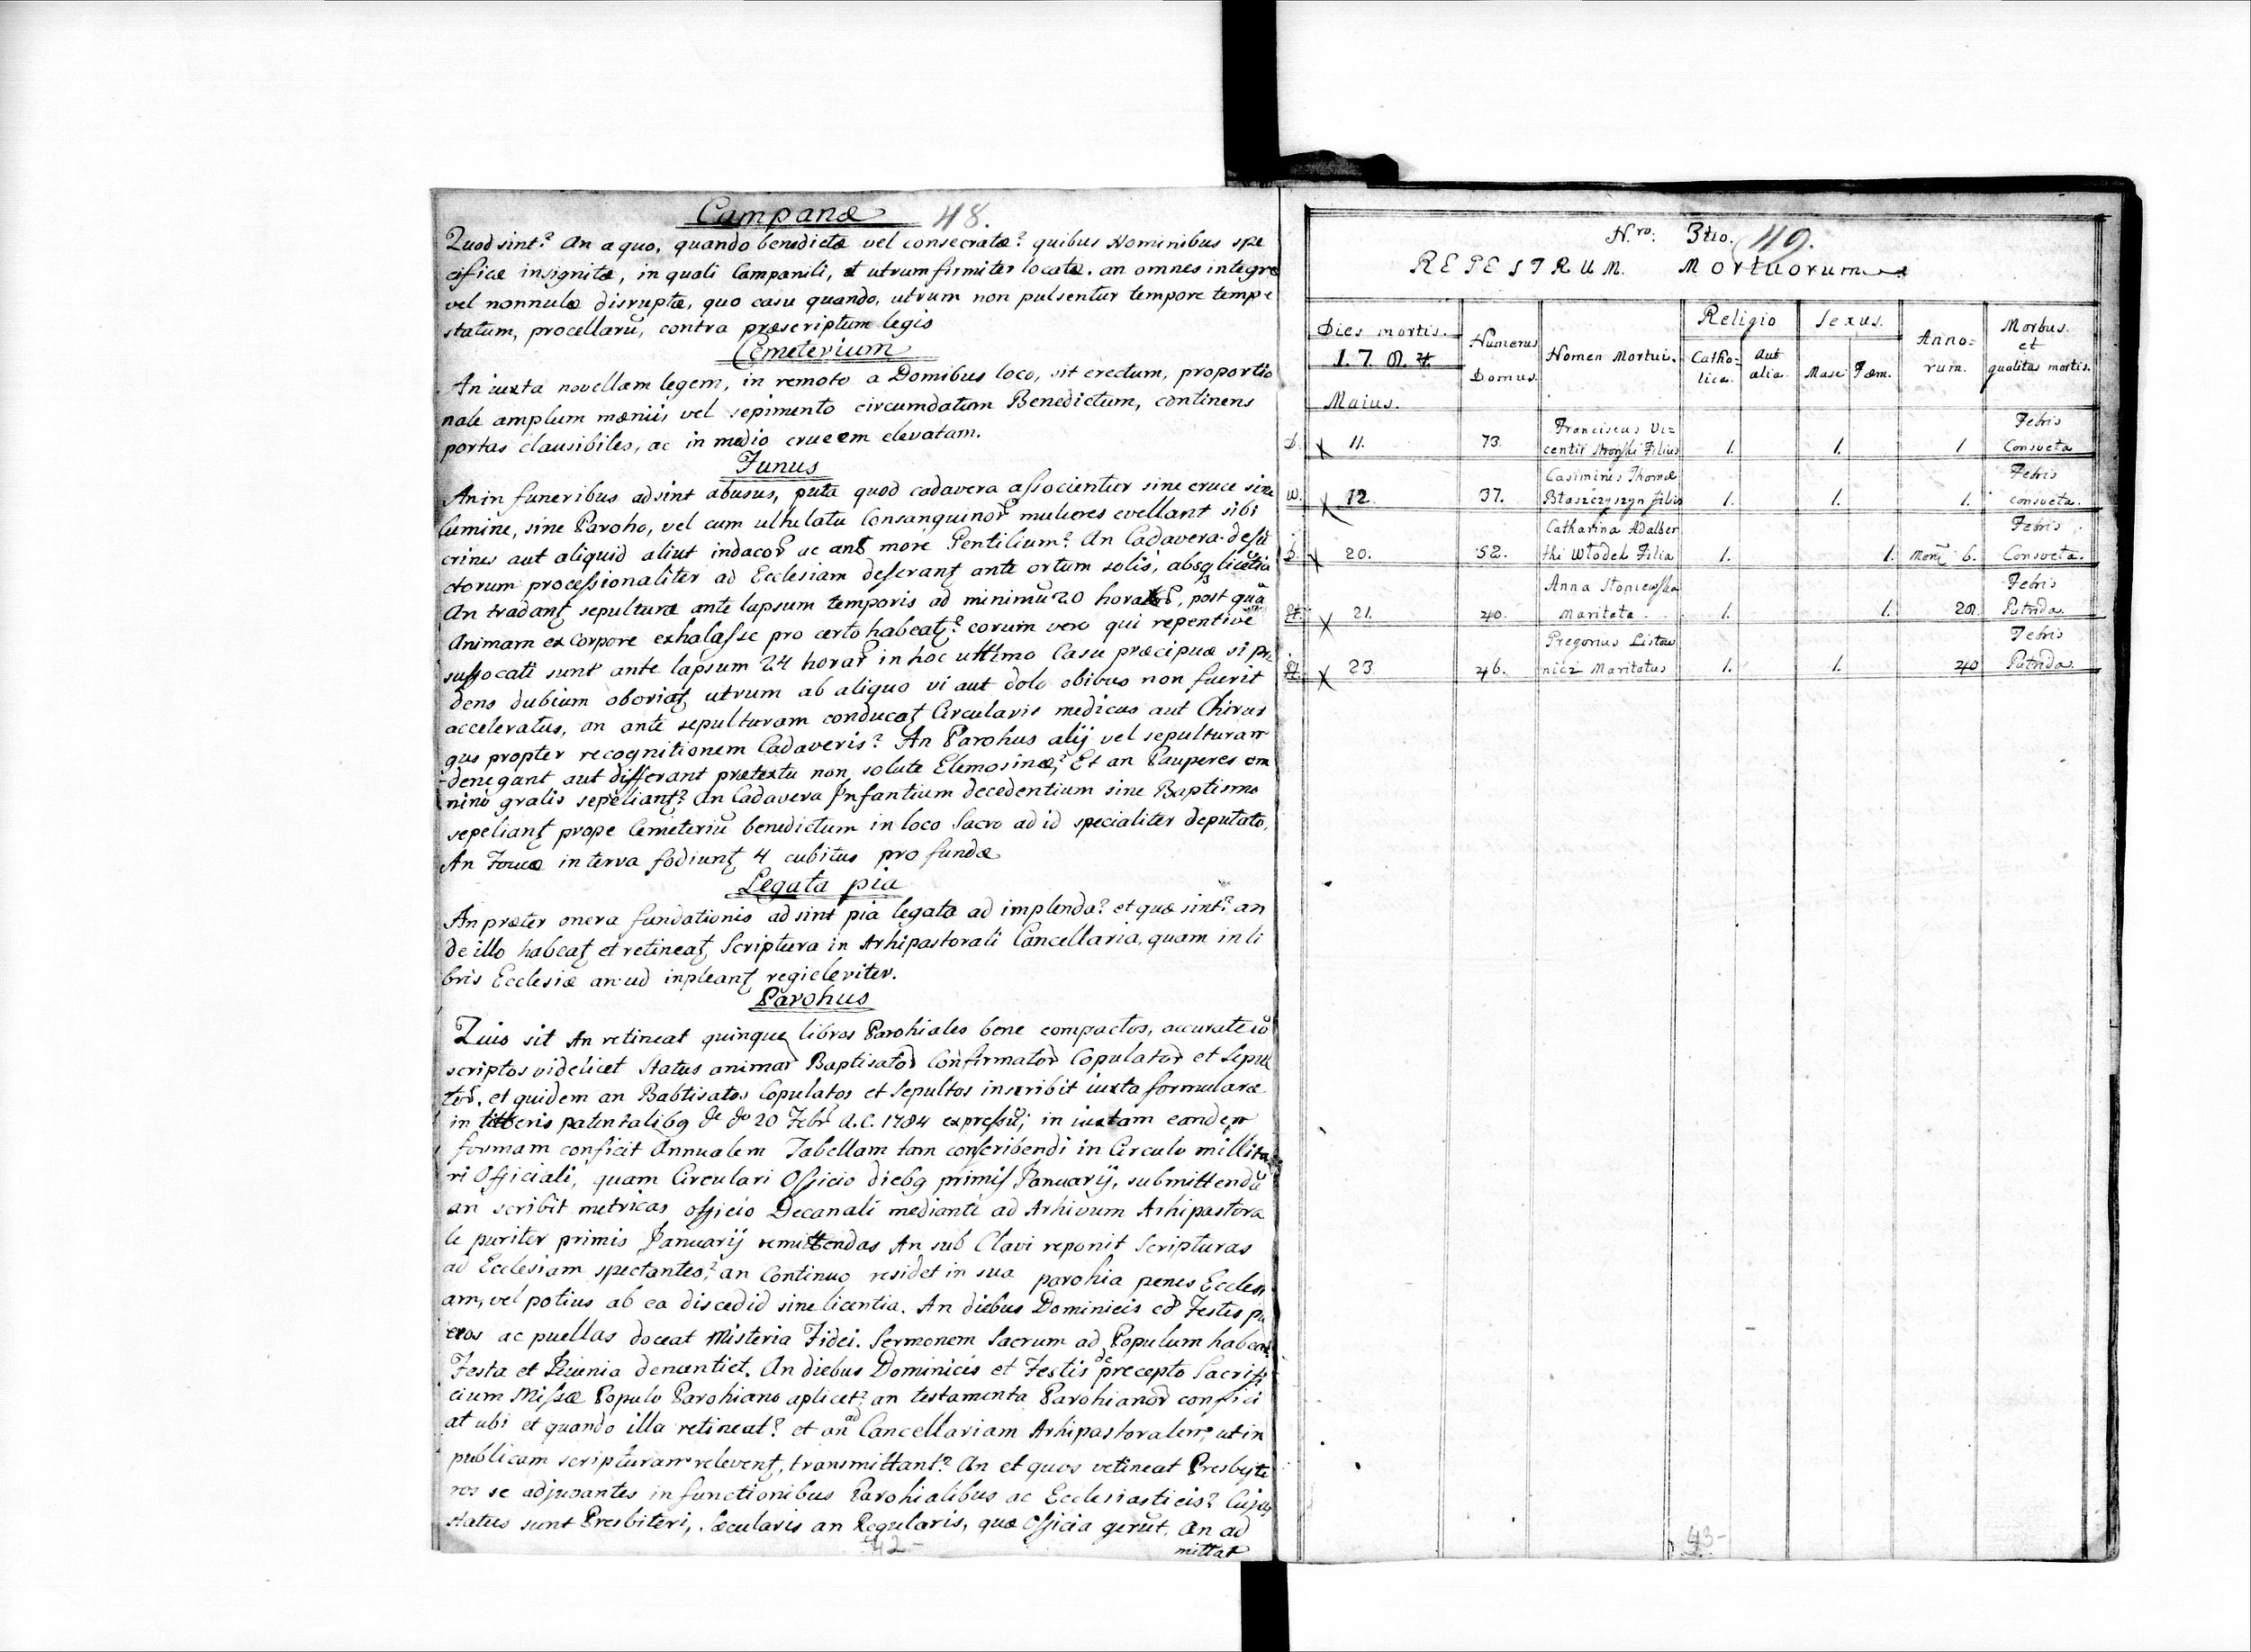 Campanæ 48.
Quod sint? An a quo, quando benedictæ vel consecratæ? quibus Nominibus spe
cificæ insignitæ, in quali Campanili, et utrum firmiter locatæ. an omnes integræ
vel nonnulæ disruptæ, quo casu quando, utrum non pulsentur tempore tempe
statum, procellarū, contra præscriptum legis
Cemeterium
An iuxta novellam legem, in remoto a Domibus loco, sit erectum, proportio
nale amplum mæniis vel sepimento circumdatum Benedictum, continens
portas clausibiles, ac in medio crucem elevatam.
Funus
An in funeribus adsint abusus, puta quod cadavera associentur sine cruce sine
lumine, sine Paroho, vel cum ulhulatu Consanguinor mulieres evellant sibi
crines aut aliquid aliut more Gentilium? An Cadavera defū
ctorum processionaliter ad Ecclesiam deferant ante ortum solis, absq licētia
An tradant sepulturæ ante lapsum temporis ad minimū 20 post quā
Animam ex Corpore exhalasse pro certo habeat? eorum vero qui repentive
suffocati sunt ante lapsum 24 horar in hoc ultimo Casu præcipuæ si pru
dens dubium oboriat utrum ab aliquo vi aut dolo obibus non fuerit
acceleratus, an ante sepulturam conducat Circularis medicus aut Chirur
gus propter recognitionem Cadaveris? An Parohus alij vel sepulturam
denegant aut differant prætextu non solutæ Elemosinæ? Et an Pauperes om
nino gratis sepeliant? An Cadavera Infantium decedentium sine Baptismo
sepeliant prope Cemeteriū benedictum in loco Sacro ad id specialiter deputato,
An Foueæ in terra fodiunt 4 cubitus profundæ
Legata pia
An præter onera fundationis adsint pia legata ad implenda? et quæ sint? an
de illo habeat et retineat Scriptura in Arhipastorali Cancellaria, quam in li
bris Ecclesiæ an ud inpleant regieleriter.
Parohus
Quis sit An retineat quinque libros Parohiales bene compactos, accurate cō
scriptos videlicet Status animar Baptisator Confirmator Copulator et Sepul
tor. et quidem an Babtisatos Copulatos et Sepultos inscribit iuxta formulare
in litteris patentalibg de do 20 Febr A.C. 1784 expressū; in iuxtam eandem
formam conficit Annualem Tabellam tam conscribendi in Circulo millita
ri Officiali, quam Circulari Officio diebg primis Januarij, submittendā
an scribit metricas officio Decanali mediante ad Arhivum Arhipastora
le pariter primis Januarij remittendas An sub Clavi reponit Scripturas
ad Ecclesiam spectantes? an Continuo residet in sua parohia penes Ecclesi
am, vel potius ab ea discedid sine licentia. An diebus Dominicis et Festis pu
eros ac puellas doceat Misteria Fidei. Sermonem Sacrum ad Populum habeat
Festa et Jeiunia denuntiet. An diebus Dominicis et Festis de precepto Sacrifi
cium Missæ Populo Parohiano aplicet? an testamenta Parohianor confici
at ubi et quando illa retineat? et an ad Cancellariam Arhipastoralem, ut in
publicam scripturam relevent, transmittant? An et quos retineat Presbyte
ros se adjuvantes in functionibus Parohialibus ac Ecclesiasticis? Cujus
status sunt Presbiteri, Sæcularis an Regularis, quæ Officia gerūt. An ad
mittat
42-
N.ro: 3tio. 49.
REGESTRUM. Mortuorum
Dies mortis. Numerus Domus. Nomen Mortui. Religio Sexus. Anno=rum. Morbus et qualitas mortis.
1784 Catho=lica. Aut alia. Masc Fæm.
Maius.
Franciscus Vi= Febris
D. x 11. 73. centii Filius 1. 1. 1 Consveta
Casimirus Thomæ Febris
w. x 12. 37. Błaszczyszyn filius 1. 1. 1. consveta.
Catharina Adalber Febris
D. x 20. 52. thi Włodek Filia 1. 1. Mens 6. Consveta.
Anna Febris
x 21. 40. Maritata 1. 1. 28. Putrida.
Gregorius Listow Febris
x 23 46. nicz Maritatus 1. 1. 40 Putrida.
43-